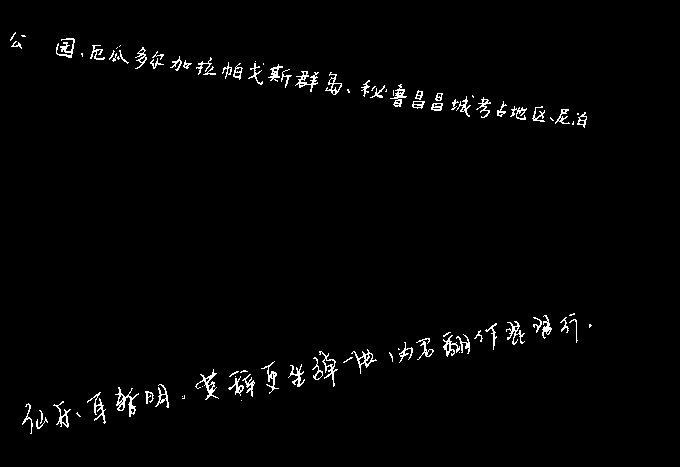 公园、厄瓜多尔加拉帕戈斯群岛、秘鲁昌昌城考占地区、尼泊
仙乐、耳暂明。莫辞更坐弹一曲,为君翻作琵琶行.